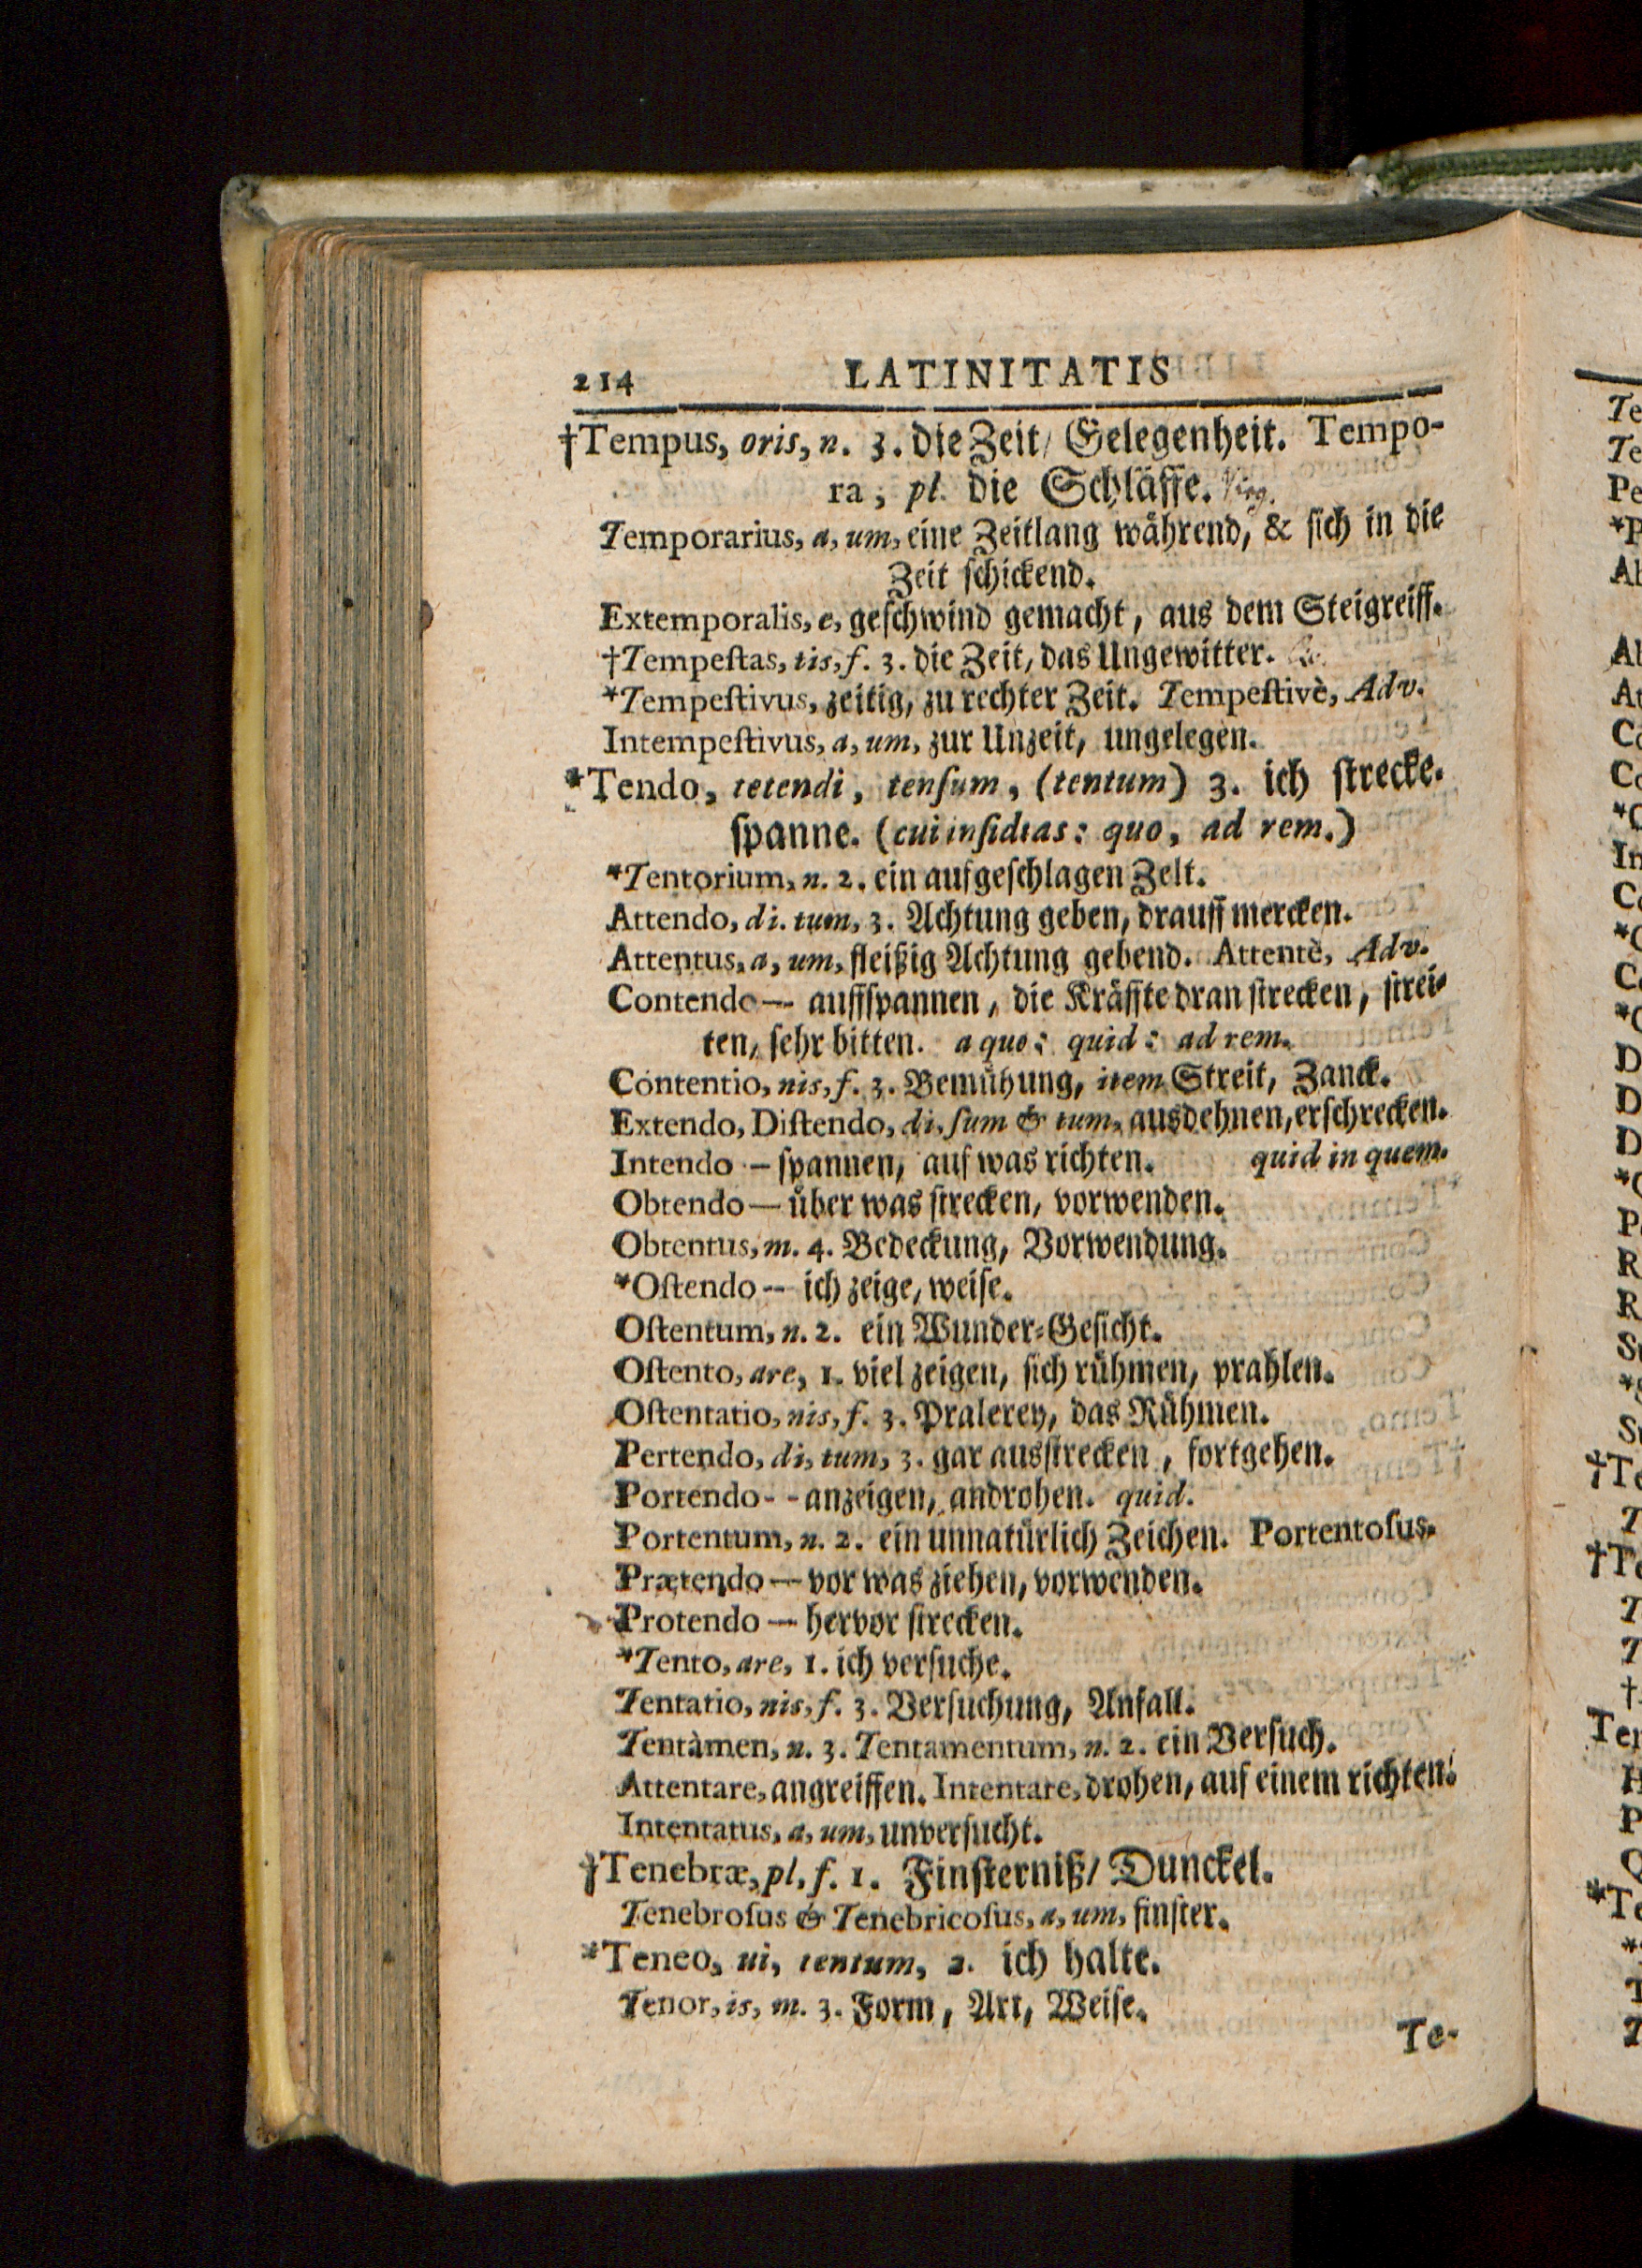 214 LATINITATIS
†Tempus, oris, n. 3. die Zeit/ Gelegenheit. Tempo-
ra, pl. die Schläffe. Virg.
Temporarius, a, um, eine Zeitlang während, & ſich in die
Zeit ſchickend.
Extemporalis, e, geſchwind gemacht, aus dem Steigreiff.
†Tempeſtas, tis, f. 3. die Zeit, das Ungewitter.
*Tempeſtivus, zeitig, zu rechter Zeit. Tempeſtivè, Adv.
Intempeſtivus, a, um, zur Unzeit, ungelegen.
*Tendo, tetendi, tenſum, (tentum) 3. ich ſtrecke.
ſpanne. (cui inſidias: quo, ad rem.)
*Tentorium, n. 2. ein aufgeſchlagen Zelt.
Attendo, di. tum, 3. Achtung geben, drauff mercken.
Attentus, a, um, fleißig Achtung gebend. Attentè, Adv.
Contendo— auffſpannen, die Kräffte dran ſtrecken, ſtrei-
ten, ſehr bitten. a quo: quid: ad rem.
Contentio, nis, f. 3. Bemühung, item Streit, Zanck.
Extendo, Diſtendo, di, ſum & tum, ausdehnen, erſchrecken.
Intendo — ſpannen, auf was richten. quid in quem.
Obtendo— über was ſtrecken, vorwenden.
Obtentus, m. 4. Bedeckung, Vorwendung.
*Oſtendo -- ich zeige, weiſe.
Oſtentum, n. 2. ein Wunder-Geſicht.
Oſtento, are, 1. viel zeigen, ſich rühmen, prahlen.
Oſtentatio, nis, f. 3. Pralerey, das Rühmen.
Pertendo, di, tum, 3. gar ausſtrecken, fortgehen.
Portendo- - anzeigen, androhen. quid.
Portentum, n. 2. ein unnatürlich Zeichen. Portentoſus.
Prætendo — vor was ziehen, vorwenden.
Protendo — hervor ſtrecken.
*Tento, are, 1. ich verſuche.
Tentatio, nis, f. 3. Verſuchung, Anfall.
Tentàmen, n. 3. Tentamentum, n. 2. ein Verſuch.
Attentare, angreiffen. Intentare, drohen, auf einem richten.
Intentatus, a, um, unverſucht.
†Tenebræ, pl, f. 1. Finſterniß/ Dunckel.
Tenebroſus & Tenebricoſus, a, um, finſter.
*Teneo, ui, tentum, 2. ich halte.
Tenor, is, m. 3. Form, Art, Weiſe.
Te-